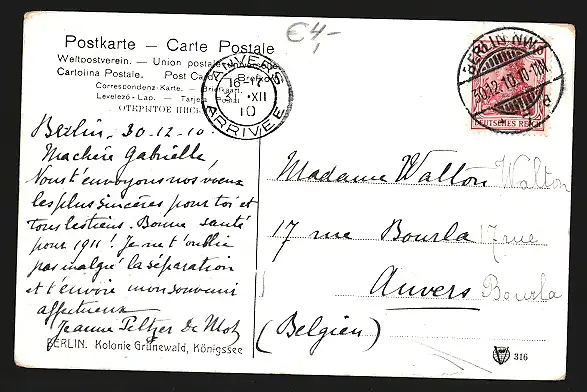 €4,-
Postkarte — Carte Postale
Weltpostverein. — Union postale
Cartolina Postale. Post Card
Correspondenz-Karte. — Briefkart.
Levelező-Lap. — Tarjeta Postal
ОТКРЫТОЕ
ANVERS
16-17
31 .XII
10
ARRIVÉE
BERLIN NW
30.12.10.10-11N
DEUTSCHES REICH
Berlin. 30-12-10.
Ma chère Gabrielle,
Nous t'envoyons nos voeux
les plus sincères pour toi et
tous les tiens. Bonne santé
pour 1911! Je ne t'oublie
pas malgré la séparation
et t'envoie mon souvenir
affectueux
Jeanne Peltzer de Mot
BERLIN. Kolonie Grunewald, Königssee
Madame Walton Walton
17 rue Bourla 17 rue
Anvers Bourla
(Belgien)
316